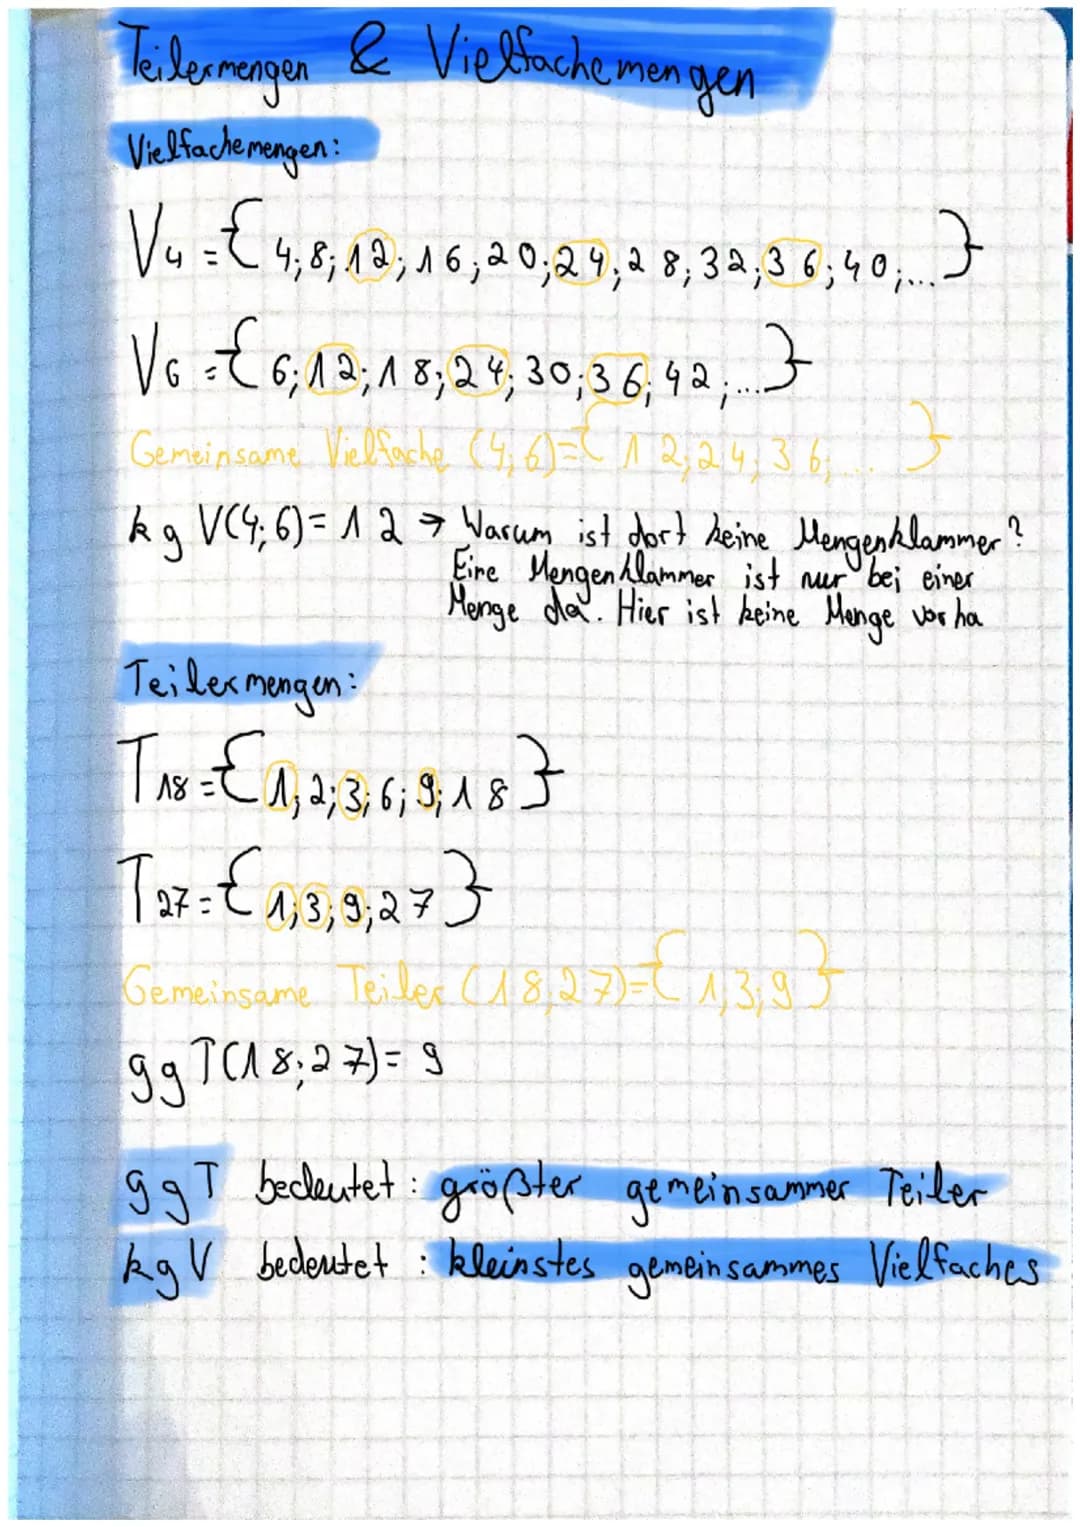 Teilermengen & Vielfachemengen
Vielfachemengen:
V4 = { 4; 8; 12; 16; 20; 24; 28; 32; 36; 40; ... }
V6 = { 6; 12; 18; 24; 30; 36; 42; ... }
Gemeinsame Vielfache (4; 6) = { 12; 24; 36; ... }
kgV(4; 6) = 12 → Warum ist dort keine Mengenklammer?
Eine Mengenklammer ist nur bei einer
Menge da. Hier ist keine Menge vorha
Teilermengen:
T18 = { 1; 2; 3; 6; 9; 18 }
T27 = { 1; 3; 9; 27 }
Gemeinsame Teiler (18; 27) = { 1, 3; 9 }
ggT(18; 27) = 9
ggT bedeutet: größter gemeinsammer Teiler
kgV bedeutet: kleinstes gemeinsammes Vielfaches